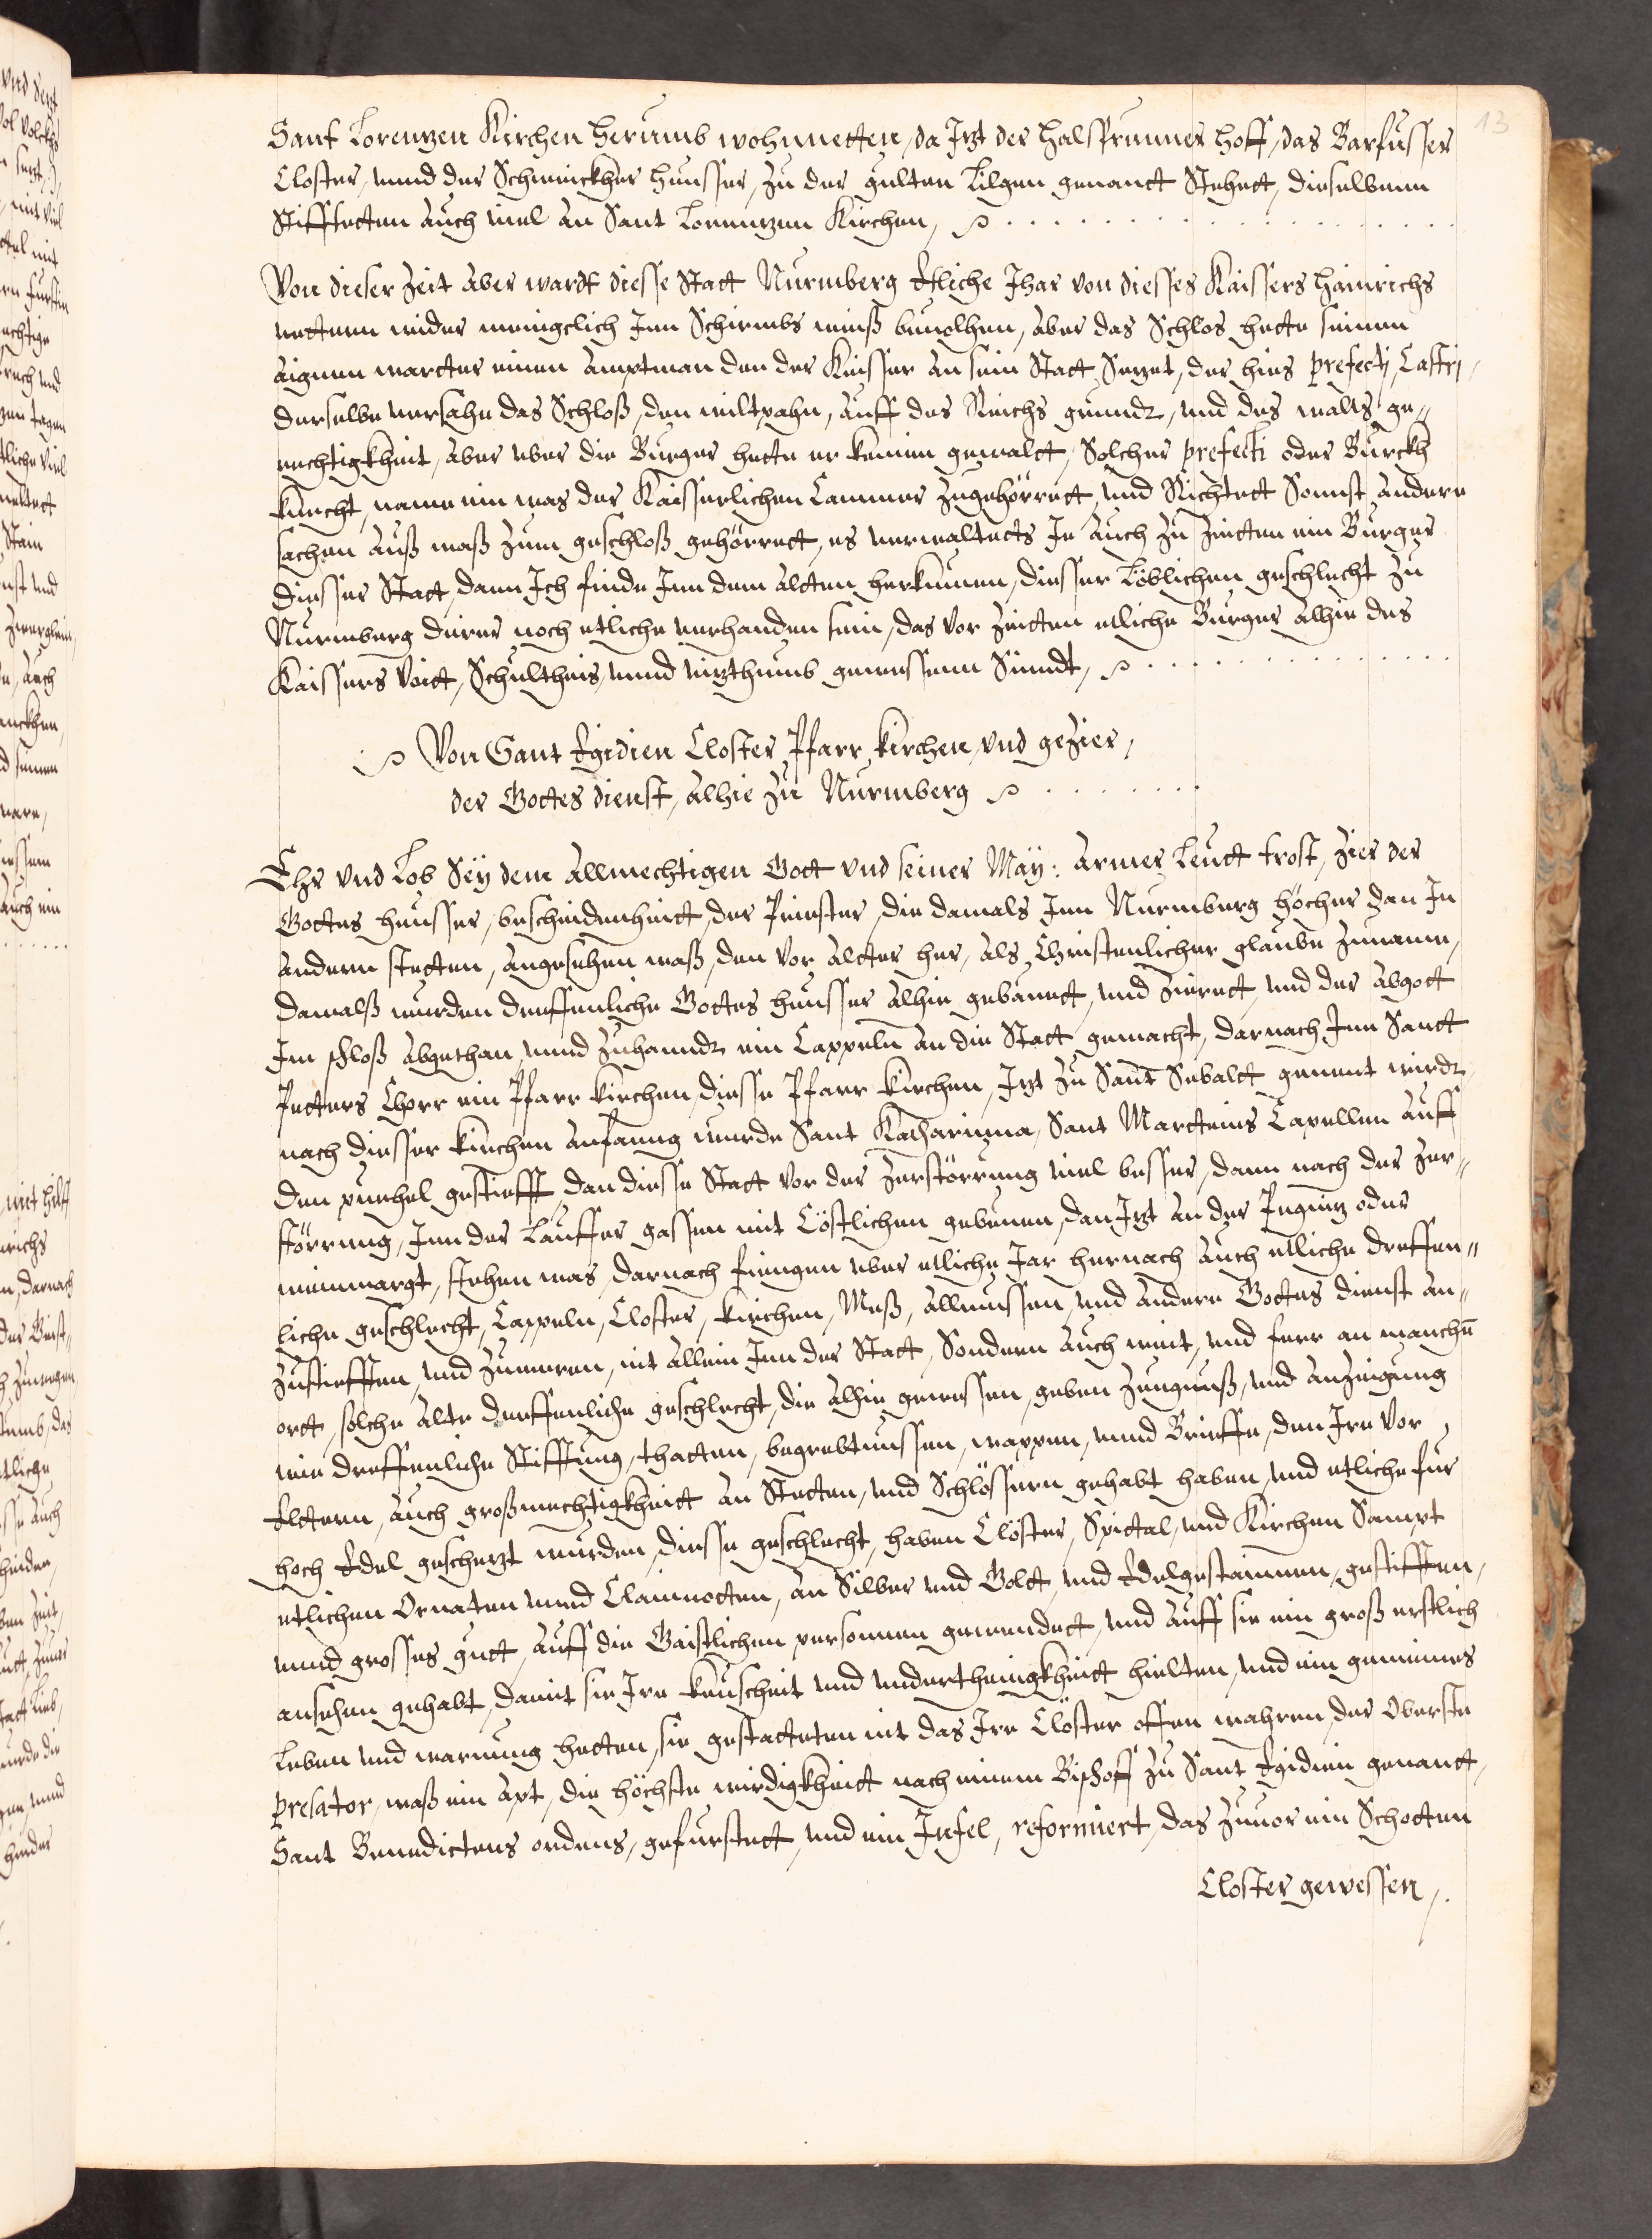 13
Sant Lorentzen Kirchen herumb wohnnetten, da Itzt der Halsprunner hoff, das Barfusser
Closter, unnd der Schmuckher heusser, zu der gulten Lilgen genandt Stehett, dieselbenn
Stifftetten Auch viel An Sant Lorentzen Kirchen,
Von dieser Zeit Aber wardt diesse Statt Nurmberg Etliche Jhar von diesses Kaissers Hainrichs
vettern wider meniglich Inn Schirmbs weiß bevolhen, Aber das Schlos hette seinen
Aignen wartter einen Amptman den der Keisser An sein Statt Setzet, der hies prefecti, Castri,
derselbe versahe das Schloß, den wiltpahn, Auff des Reichs grundt, und des walts ge„
rechtigkheit, Aber uber die Burger hette er keinen gewaltt, Solcher prefecti oder Burckh
knecht, name ein was der Kaisserlichen Cammer Zugehörrett, und Richtett Sonnst Andere
sachen Auß waß zum geschloß gehörrett, es verwaltets Je Auch zu Zeitten ein Burger
diesser Statt, dann Ich finde Inn dem Altten herkumen, diesser Löblichen geschlecht zu
Nurmberg derer noch etliche verhanden sein, das vor Zeitten etliche Burger Alhie des
Kaissers Voitt, Schultheis, unnd vizthumb gewessenn Sindt,
Von Sant Egidien Closter Pfarr kirchen, vnd gezier,
der Gottes dienst, Alhie zu Nurmberg
Ehr vnd Lob Seÿ dem Allmechtigen Gott vnd seiner Maÿ: Armer Leutt trost, Zier der
Gottes heusser, bescheidenheitt, der Priester, die damals Inn Nurmberg höcher dan In
Andern stetten, Angesehen waß, den vor Altter her, Als Christenlicher glaube Zuname,
damalß wurden dreffenliche Gottes heusser Alhie gebauett, und Zierett, und der Abgott
Im schloß Abgethan, unnd zuhanndt ein Cappeln An die Statt gemacht, darnach Inn Sanct
Petters Chorr ein Pfarr kirchen, diesse Pfarr kirchen, Itzt zu Sant Sebaltt genent wirdt
nach diesser kirchen Anfanng wurde Sant Katharinna, Sant Marteins Capellen Auff
den puchel gestiefft, dan diesse Statt vor der Zerstörrung viel besser, dann nach der Zer„
störrung, Inn der Lauffer gassen mit Cöstlichen gebeuen, dan Itzt An der Pegnitz oder
weinmargt, stehen was, darnach fiengen uber etliche Jar hernach Auch etliche dreffen„
liche geschlecht, Cappeln, Closter, kirchen, Meß, Allmussen, und Andere Gottes dienst An„
zustiefften, und zumeren, nit Allein Inn der Statt, Sondern Auch weit, und ferr an manchẽ
ortt, solche Alte dreffenliche geschlecht, die Alhie gewessen, geben Zeugnuß, und Anzeigung
wie dreffenliche Stifftung, thatten, begrebtnussen, wappen, unnd Brieffe, den Ire Vor
Elttern, Auch großmechtigkheitt An Stetten, und Schlössern gehabt haben, und etliche fur
hoch Edel geschezt wurden, diesse geschlecht, haben Clöster, Spittal, und Kirchen Sampt
etlichen Ornaten unnd Clainnotten, An Silber und Goltt, und Edelgestainnen, gestifften,
unnd grosses gutt, Auff die Gaistlichen personnen gewendett, und Auff sie ein groß erstlich
ansehen gehabt, damit sie Ire keuscheit und underthenigkheitt hielten, und ein gemeines
Leben und warnung hetten, sie gestatteten nit das Ire Clöster offen wahren, der Oberste
presator, waß ein Apt, die höchste wirdigkheitt nach einem Bischoff zu Sant Egidien genandt,
Sant Benedictens ordens, gefurstett, und ein Infel, reformiert, das zuvor ein Schotten
Closter gewessen,